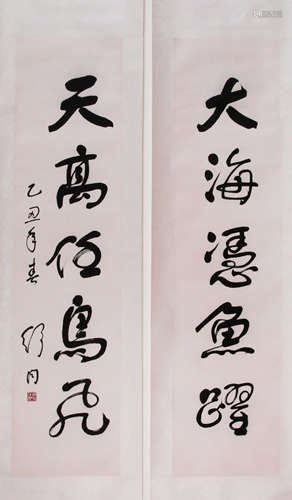 大海憑魚躍
天高任鳥飛
乙丑年春
舒同